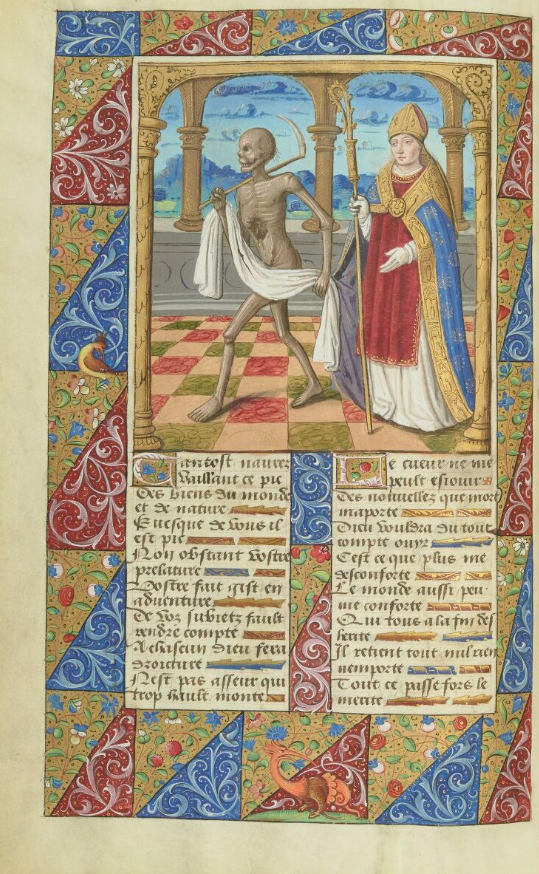 Tantost naurez
vaillant ce pic
Des biens du monde
et de nature
Euesque de vous il
est pic
Non obstant vostre
prelature
Vostre fait gist en
aduenture
De voz subietz fault
rendre compte
A chascun dieu fera
droicture
Nest pas asseur qui
trop hault monte
Le cueur ne me
peult esiouir
Des nouuellez que mort
maporte
Dieu vouldra du tout
compte ouyr
Cest ce que plus me
desconforte
Le monde aussi peu
me conforte
Qui tous a la fin des
herite
Il retient tout nul rien
nemporte
Tout ce passe fors le
merite